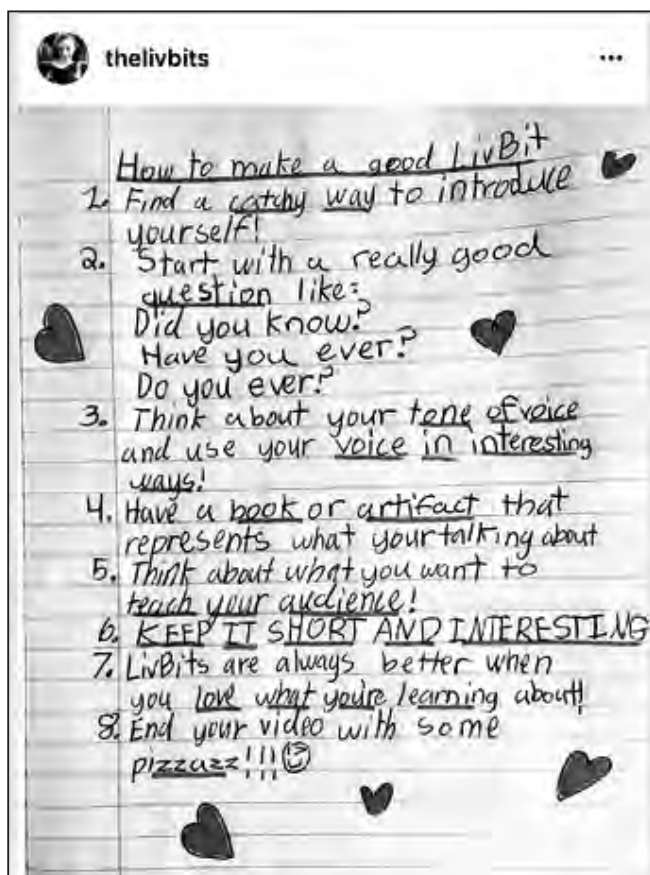 thelivbits
How to make a good LivBit
1. Find a catchy way to introduce
yourself!
2. Start with a really good
question like:
Did you know?
Have you ever?
Do you ever?
3. Think about your tone of voice
and use your voice in interesting
ways!
4. Have a book or artifact that
represents what your talking about
5. Think about what you want to
teach your audience!
6. KEEP IT SHORT AND INTERESTING
7. LivBits are always better when
you love what you're learning about!!
8. End your video with some
pizzazz!!!